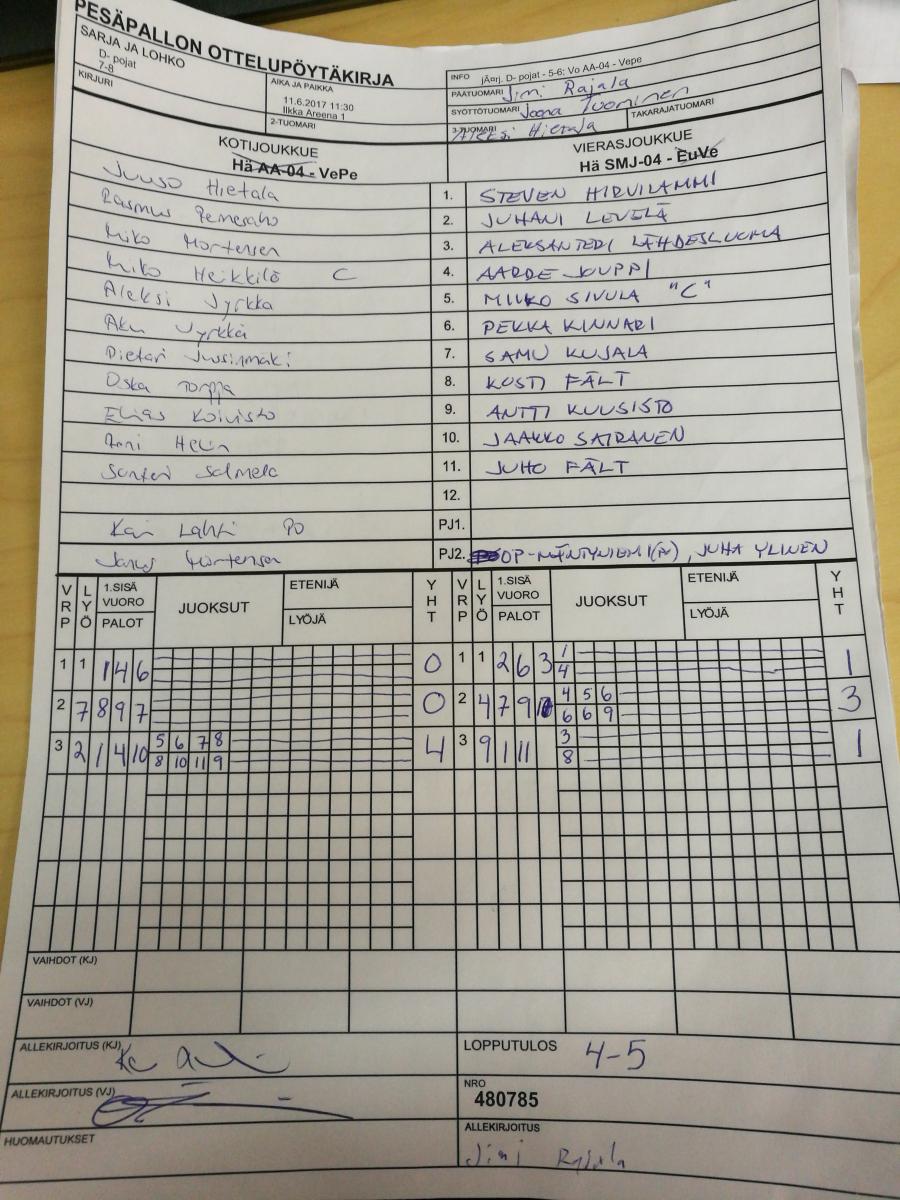 PESÄPALLON OTTELUPÖYTÄKIRJA
SARJA JA LOHKO
D- pojat
7-8
KIRJURI
AIKA JA PAIKKA
11.6.2017 11:30
Ilkka Areena 1
2-TUOMARI
INFO jÃ¤rj. D- pojat - 5-6: Vo AA-04 - Vepe
PÄÄTUOMARI Jimi Rajala
SYÖTTÖTUOMARI Joona Tuominen
TAKARAJATUOMARI
3-TUOMARI Aleksi Hietala
KOTIJOUKKUE
Hä AA-04 - VePe
VIERASJOUKKUE
Hä SMJ-04 - EuVe
Juuso Hietala 1. STEVEN HIRVILAMMI
Rasmus 2. JUHANI LEVELÄ
Miko Mortensen 3. ALEKSANTERI LÄHDESLUOMA
Miko Heikkilä C 4. AARDE JOUPPI
Aleksi Jyrkkä 5. MIIKO SIVULA "C"
Aku Jyrkkä 6. PEKKA KINNARI
Pietari Juusinmäki 7. SAMU KUJALA
Oska Torppa 8. KOSTI FÄLT
Elias Koivisto 9. ANTTI KUUSISTO
Anni Helin 10. JAAKKO SAIRANEN
Santeri Salmela 11. JUHO FÄLT
12.
Kai Lahti PO PJ1.
Mortensen PJ2. OP-MÄNTYNIEMI, JUHA YLINEN
VRP LYÖ 1.SISÄ VUORO PALOT JUOKSUT ETENIJÄ LYÖJÄ YHT VRP LYÖ 1.SISÄ VUORO PALOT JUOKSUT ETENIJÄ LYÖJÄ YHT
1 1 1 4 6 0 1 1 2 6 3 1 1
4
2 7 8 9 7 0 2 4 7 9 4 5 6 3
6 6 9
3 2 1 4 10 5 6 7 8 4 3 9 1 11 3 1
8 10 11 9 8
VAIHDOT (KJ)
VAIHDOT (VJ)
ALLEKIRJOITUS (KJ)
LOPPUTULOS 4-5
ALLEKIRJOITUS (VJ)
NRO
480785
HUOMAUTUKSET
ALLEKIRJOITUS
Jimi Rajala